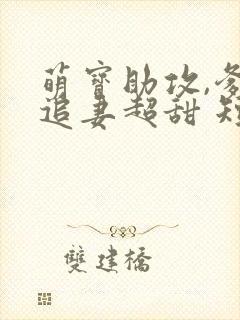 萌寶助攻,爹
追妻超甜 短
雙建橋